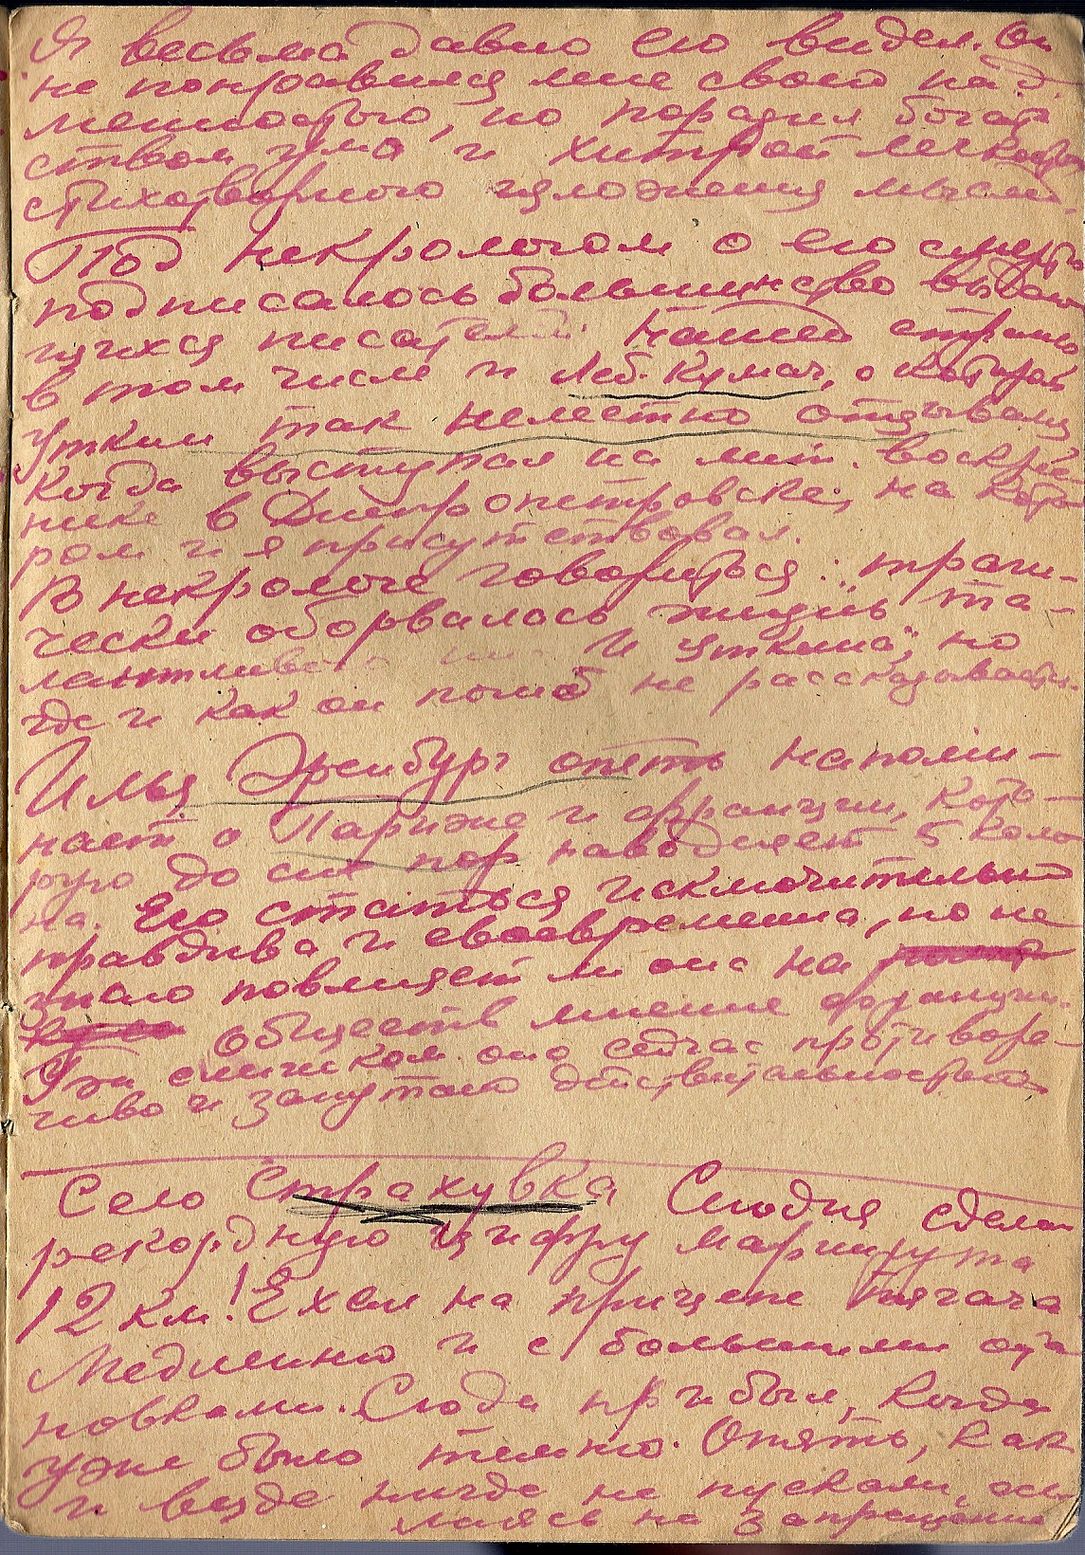 Я весьма давно его видел. Он
не понравился мне своей над
менностью, но поразил богат
ством ума и хитрой легкостью
стихотворного изложения мысли.
Под некрологом о его смерти
подписалось большинство выдаю
щихся писателей нашей страны
в том числе и Леб. Кумач, о котором
Уткин так нелестно отзывался
когда выступал на лит. воскрес
нике в Днепропетровске, на кото
ром и я присутствовал.
В некрологе говориться: „траги-
чески оборвалась жизнь та-
лантливого И Уткина", но
где и как он погиб не рассказывается.
Илья Эренбург опять напоми-
нает о Париже и Франции, кото-
рую до сих пор наводняет 5 колон
на. Его статься исключительно
правдива и своевременна, но не
знаю повлияет ли она на
обществ мнение французи-
Уж слишком оно сейчас противоре-
чиво и запутано действительностью
Село Страхувка Сегодня сделал
рекордную цифру маршрута
12 км! Ехал на прицепе тягача
Медленно и с большими оста
новками. Сюда прибыл, когда
уже было темно. Опять, как
и везде нигде не пускали, ссы
лаясь на запрещение